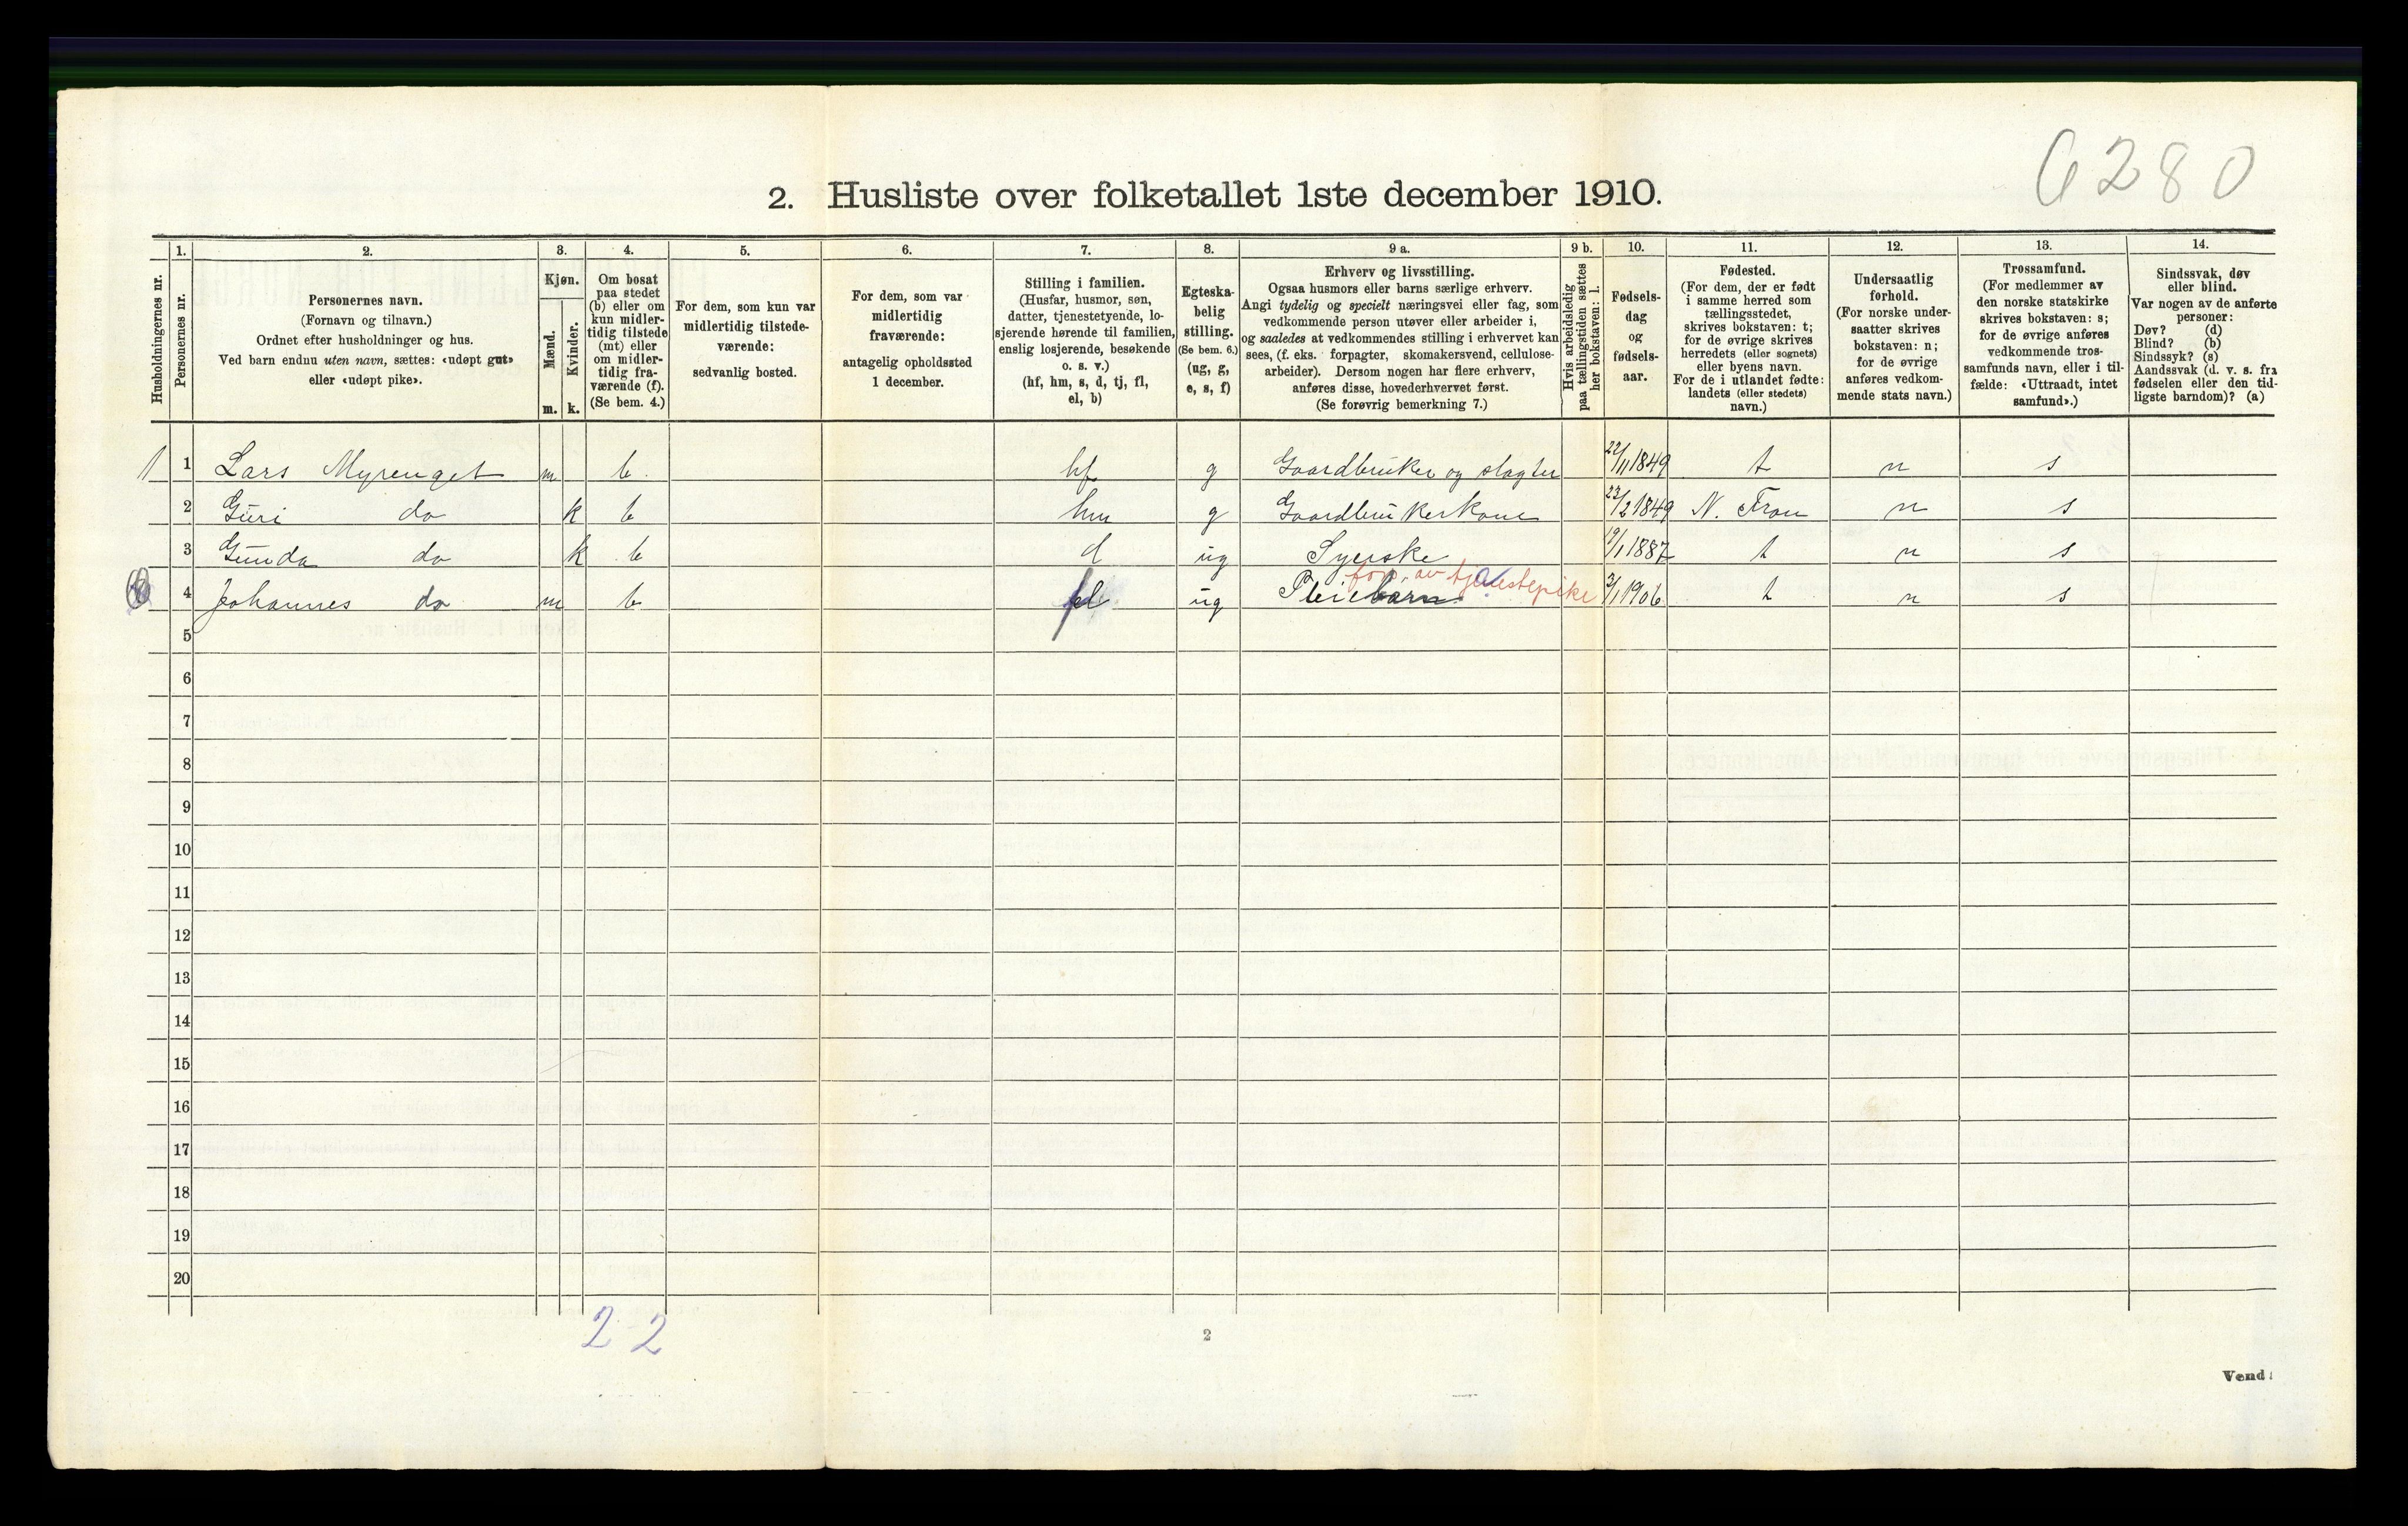 6280
2. Husliste over folketallet 1ste december 1910.
Husholdningernes nr.
1.
Personernes nr.
2.
Personernes navn.
(Fornavn og tilnavn.)
Ordnet efter husholdninger og hus.
Ved barn endnu uten navn, sættes: «udøpt gut»
eller «udøpt pike».
3.
Kjøn.
Mænd.
Kvinder.
m. k.
4.
Om bosat
paa stedet
(b) eller om
kun midler-
tidig tilstede
(mt) eller
om midler-
tidig fra-
værende (f).
(Se bem. 4.)
5.
For dem, som kun var
midlertidig tilstede-
værende:
sedvanlig bosted.
6.
For dem, som var
midlertidig
fraværende:
antagelig opholdssted
1 december.
7.
Stilling i familien.
(Husfar, husmor, søn,
datter, tjenestetyende, lo-
sjerende hørende til familien,
enslig losjerende, besøkende
o. s. v.)
(hf, hm, s, d, tj, fl,
el, b)
8.
Egteska-
belig
stilling.
(Se bem. 6.)
(ug, g,
e, s, f)
9 a.
Erhverv og livsstilling.
Ogsaa husmors eller barns særlige erhverv.
Angi tydelig og specielt næringsvei eller fag, som
vedkommende person utøver eller arbeider i,
og saaledes at vedkommendes stilling i erhvervet kan
sees, (f. eks. forpagter, skomakersvend, cellulose-
arbeider). Dersom nogen har flere erhverv,
anføres disse, hovederhvervet først.
(Se forøvrig bemerkning 7.)
9 b.
Hvis arbeidsledig
paa tællingstiden sættes
her bokstaven: l.
10.
Fødsels-
dag
og
fødsels-
aar.
11.
Fødested.
(For dem, der er født
i samme herred som
tællingsstedet,
skrives bokstaven: t;
for de øvrige skrives
herredets (eller sognets)
eller byens navn.
For de i utlandet fødte:
landets (eller stedets)
navn.)
12.
Undersaatlig
forhold.
(For norske under-
saatter skrives
bokstaven: n;
for de øvrige
anføres vedkom-
mende stats navn.)
13.
Trossamfund.
(For medlemmer av
den norske statskirke
skrives bokstaven: s;
for de øvrige anføres
vedkommende tros-
samfunds navn, eller i til-
fælde: «Uttraadt, intet
samfund».)
14.
Sindssvak, døv
eller blind.
Var nogen av de anførte
personer:
Døv? (d)
Blind? (b)
Sindssyk? (s)
Aandssvak (d. v. s. fra
fødselen eller den tid-
ligste barndom)? (a)
1 1 Lars Myrenget m b hf g Gaardbruker og slagter 22/11 1849 t n s
2 Guri do k b hm g Gaardbrukerkone 23/2 1849 N. Fron n s
3 Gunda do k b d ug Syerske 19/1 1887 t n s
4 Johannes do m b fl ug Pleiebarn for. av tjenestepike 3/1 1906 t n s
5
6
7
8
9
10
11
12
13
14
15
16
17
18
19
20
2-2
2
Vend!